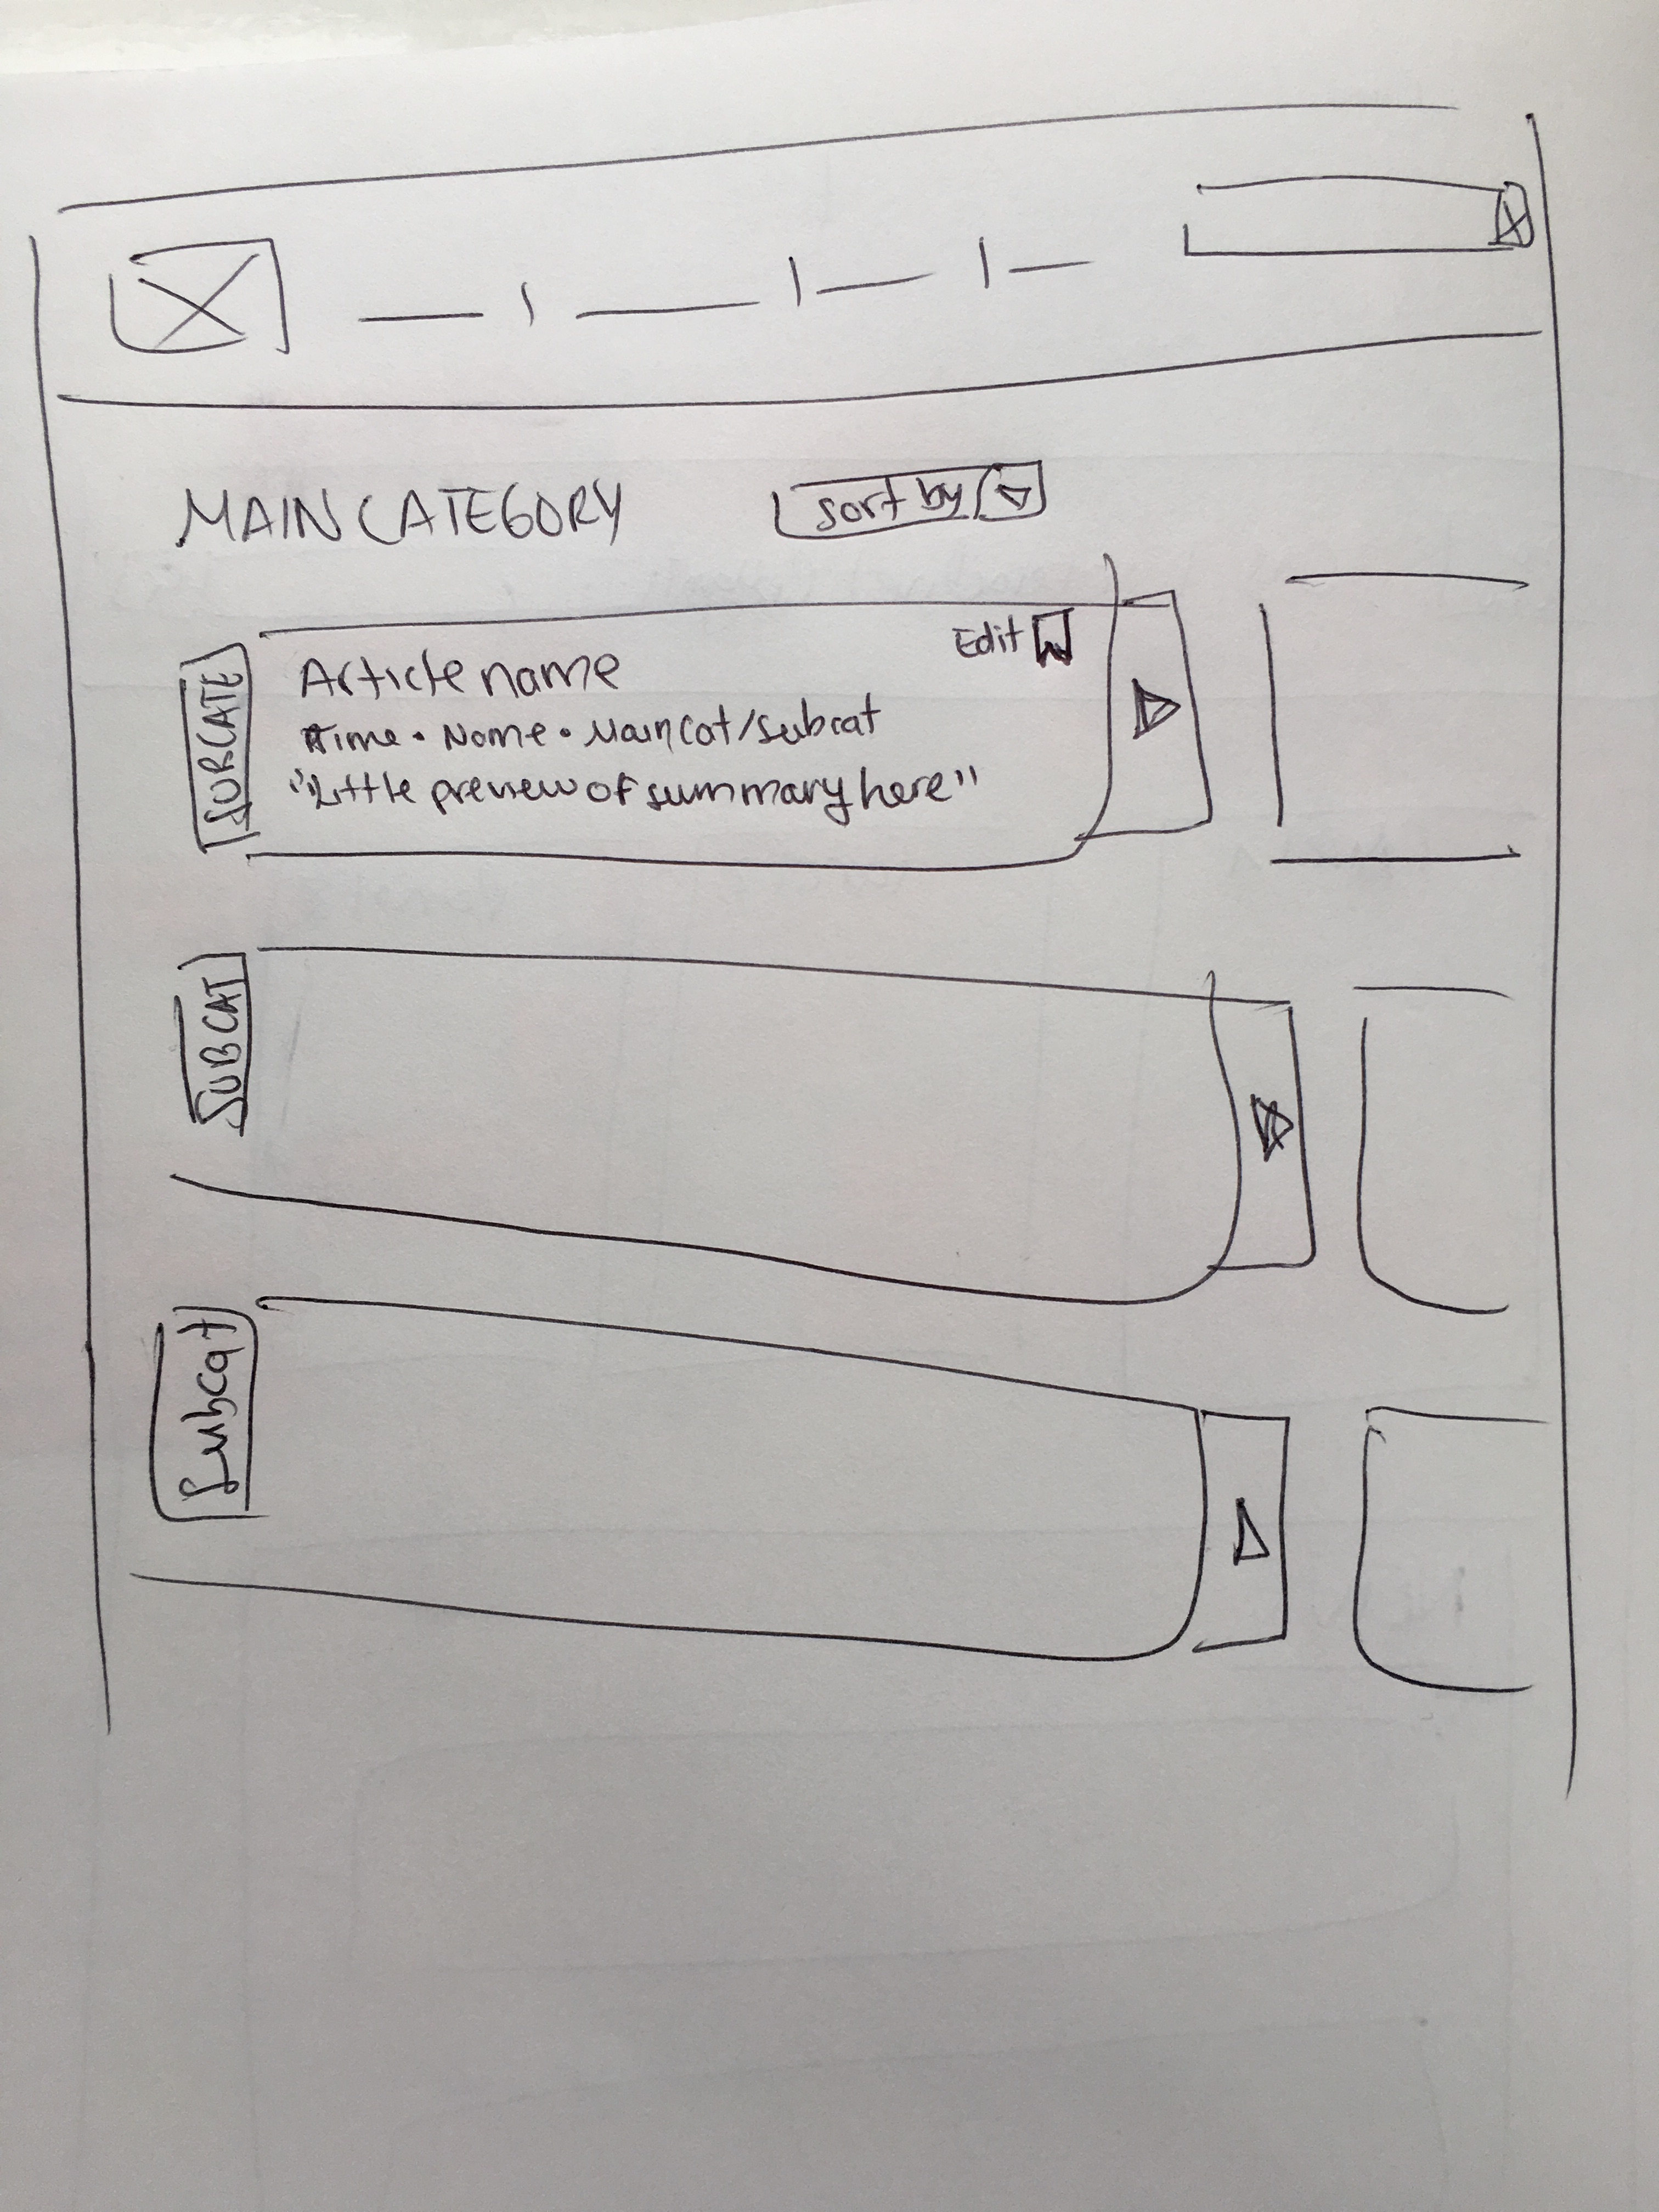 MAIN CATEGORY
sort by
SUBCATE
Edit
Article name
Time • Name • Main Cat/subcat
"Little preview of summary here"
SUBCAT
Subcat